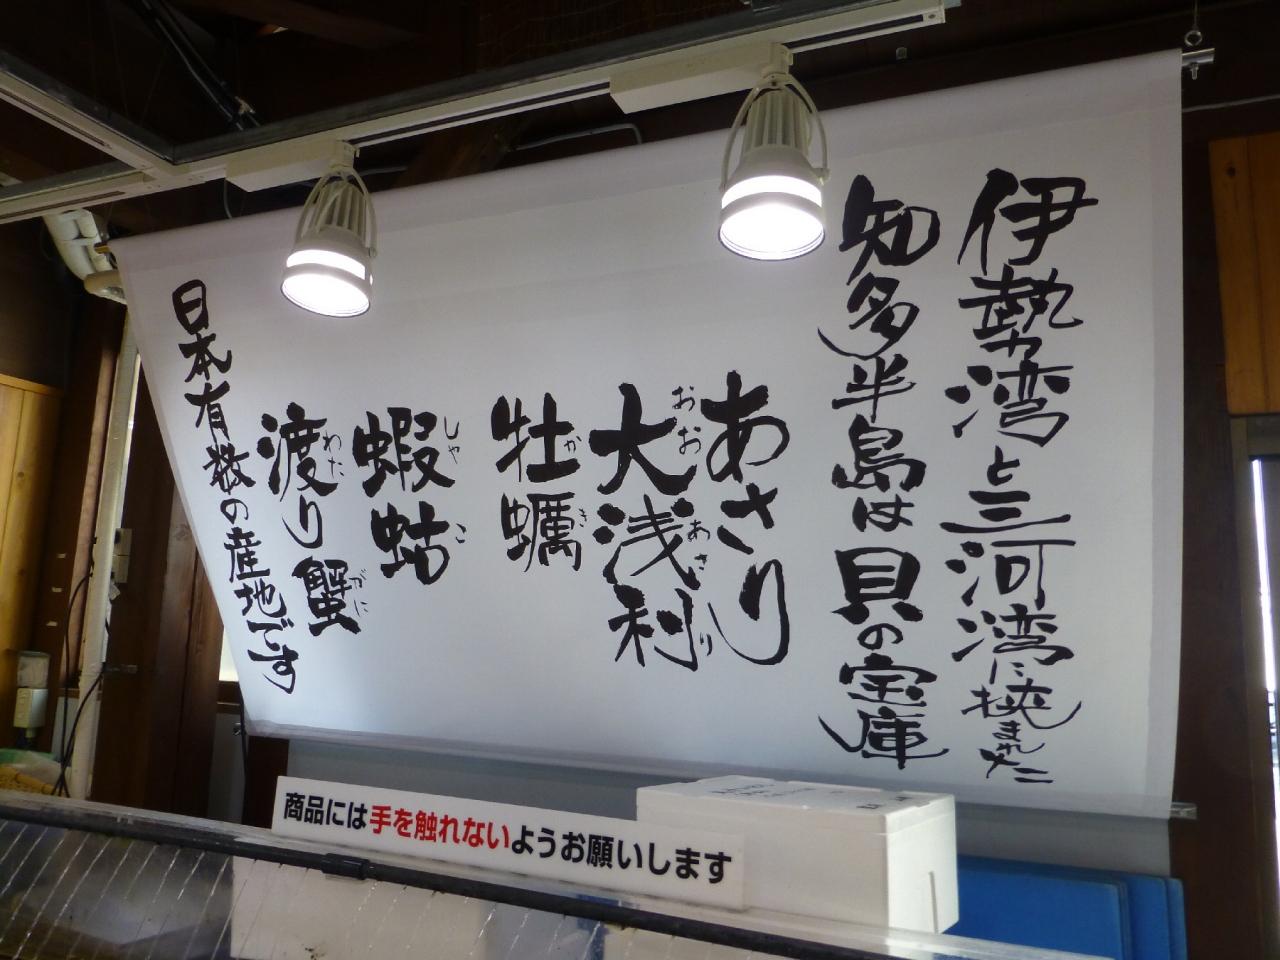 伊勢湾と三河湾に挟まれた
知多半島は貝の宝庫
あさり
大浅利
おおあさり
牡蠣
かき
蝦蛄
しゃこ
渡り蟹
わたがに
日本有数の産地です
商品には手を触れないようお願いします